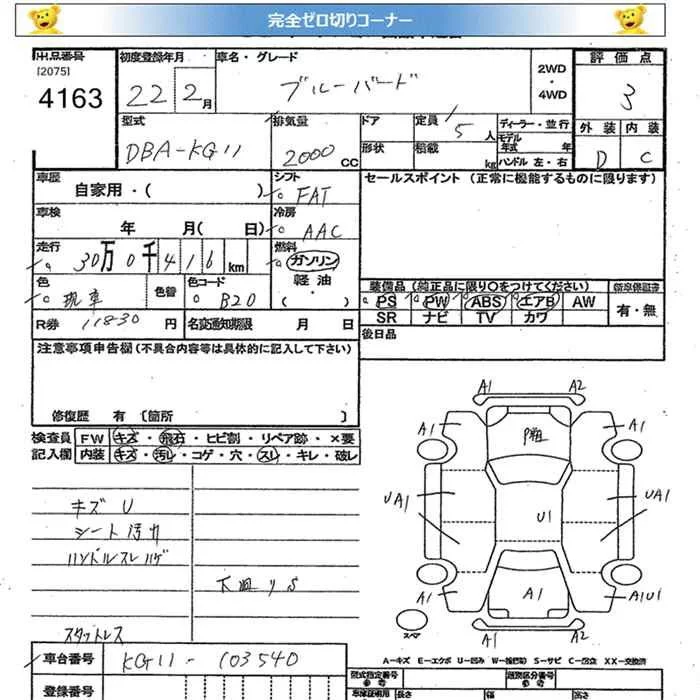 完全ゼロ切りコーナー
出品番号
[2075]
4163
初度登録年月
22 2月
車名・グレード
ブルーバード
2WD
・
4WD
評価点
3
外装 内装
D C
型式
DBA-KG11
排気量
2000 CC
ドア
形状
定員
5人
積載
kg
ディーラー・並行
モデル
年式 年
ハンドル 左・右
車歴
自家用・( )
シフト
FAT
セールスポイント (正常に機能するものに限ります)
車検
年 月( 日)
冷房
AAC
走行
30万0千416km
燃料
ガソリン
軽油
・( ・ )
色
現車
色替
色コード
B20
装備品(純正品に限り○をつけてください)
新車保証書
PS PW ABS エアB AW
SR ナビ TV カワ
有・無
R券 11830 円
名変通知期限 月 日
後日品
注意事項申告欄(不具合内容等は具体的に記入して下さい)
修復歴 有 〔箇所 〕
検査員
記入欄
FW キズ・飛石・ヒビ割・リペア跡・×要
内装 キズ・汚れ・コゲ・穴・スレ・キレ・破レ
キズ U
シート汚れ
ハンドルスレハゲ
下廻りS
スタットレス
A1 A2
A1 A1
P飛
UA1 UA1
U1
A1 A1 A1U1
A1 A2
スペア
A-キズ E-エクボ U-凹み W-補修跡 S-サビ C-腐食 XX-交換済
車台番号
KG11-103540
登録番号
型式指定番号
類別区分番号
車庫証明用
長さ
幅
高さ